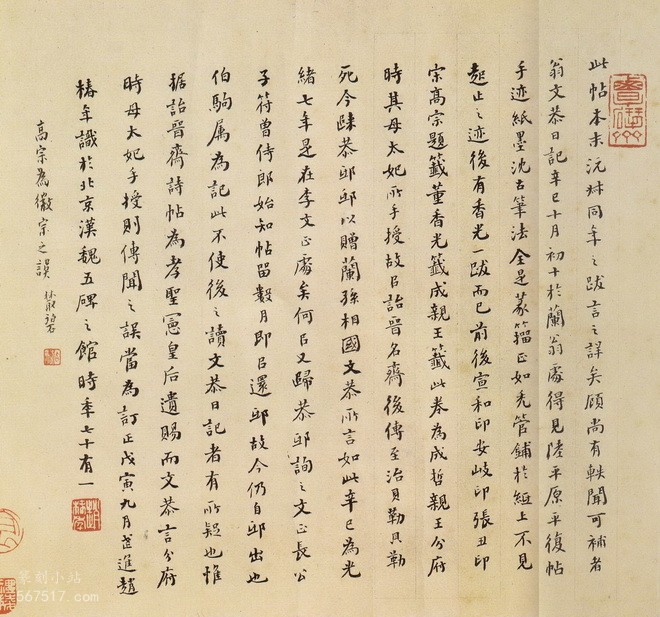 此帖本末沅叔同年之跋言之詳矣顧尚有軼聞可補者
翁文恭日記辛巳十月初十於蘭翁處得見陸平原平復帖
手迹紙墨沈古筆法全是篆籀正如禿管鋪於紙上不見
起止之迹後有香光一跋而已前後宣和印安岐印張丑印
宋高宗題籤董香光籤成親王籤此卷為成哲親王分府
時其母太妃所手授故㠯詒晉名齋後傳至治貝勒貝勒
死今歸恭邸邸以贈蘭孫相國文恭所言如此辛巳為光
緒七年是在李文正處矣何㠯又歸恭邸詢之文正長公
子符曾侍郎始知帖留數月即㠯還邸故今仍自邸出也
伯駒屬為記此不使後之讀文恭日記者有所疑也惟
据詒晉齋詩帖為孝聖憲皇后遺賜而文恭言分府
時母太妃手授則傳聞之誤當為訂正戊寅九月芷進趙
椿年識於北京漢魏五碑之館時年七十有一
高宗為徽宗之誤
篆刻小站
567517.com